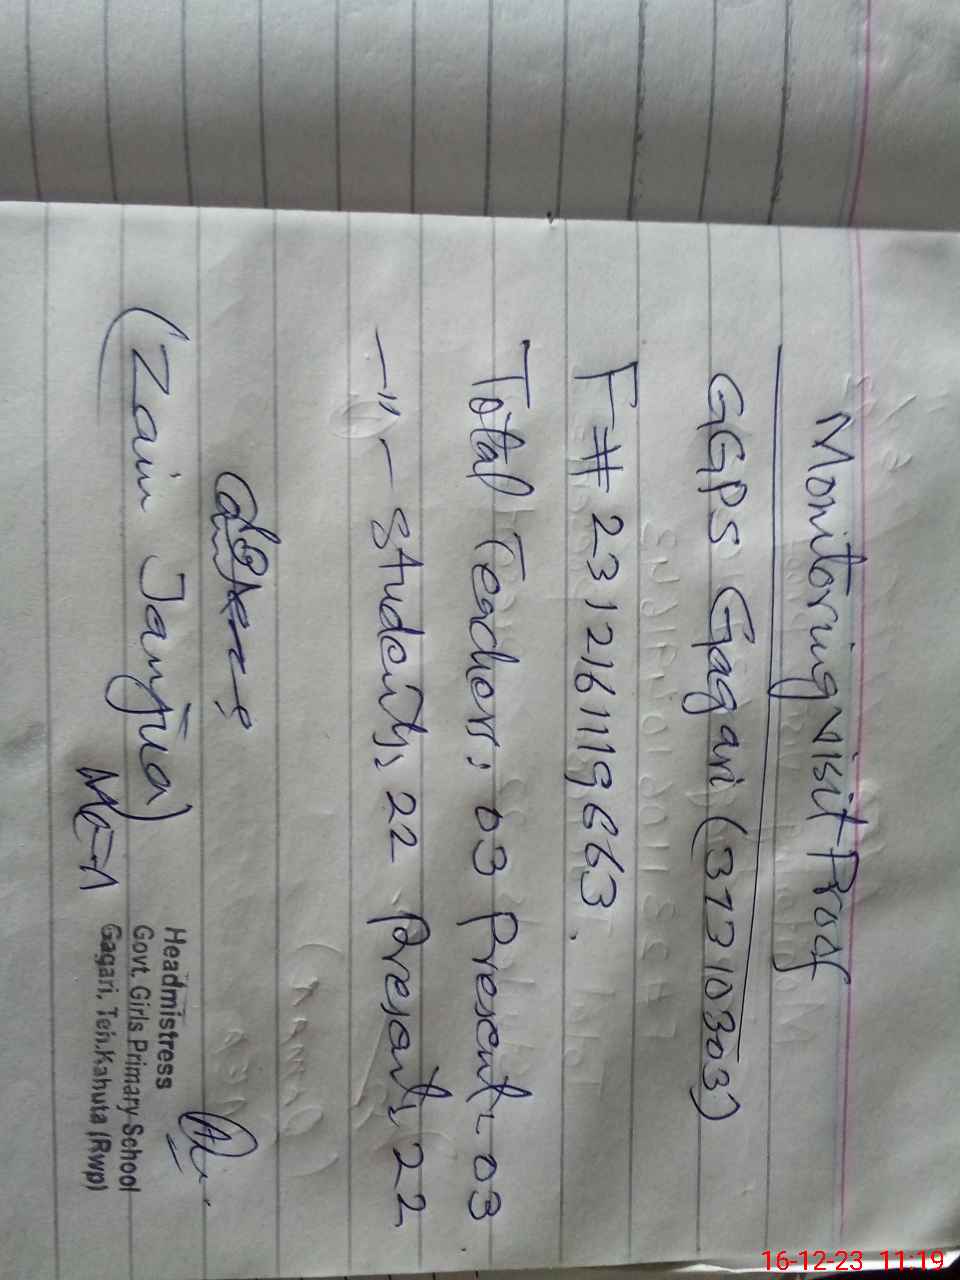 Monitoring visit Proof
GGPS Gagari (37310303)
F# 2312161119663.
Total Teachers; 03 Present - 03
—"— Students, 22 Present, 22
(Zain Janjua)
Headmistress
Govt. Girls Primary School
Gagari, Teh.Kahuta (Rwp)
16-12-23 11:19